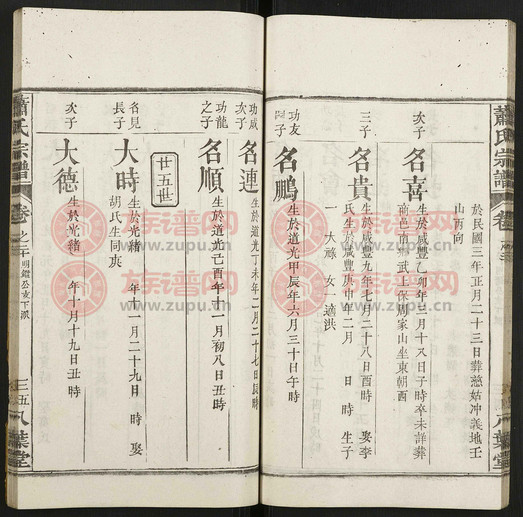 蕭氏宗譜
於民國三年正月二十三日葬慈姑冲義地壬
山丙向
次子
名喜
生於咸豐乙卯年三月十八日子時卒未詳葬
商邑南鄉武上保周家山坐東朝酉
三子
名貴
生於咸豐九年七月二十八日酉時 娶李
氏生咸豐庚申年二月 日 時 生子
一 大祿 女一適洪
功友
子
名鵬
生於道光甲辰年六月三十日午時
功成
次子
名連
生於道光丁未年二月二十七日辰時
功龍
之子
名順
生於道光己酉年十一月初八日丑時
廿五世
名見
長子
大時
生於光緒 年十一月二十九日 時 娶
胡氏生同庚
次子
大德
生於光緒 年十月十九日丑時
蕭氏宗譜
卷之二十
明鑑公支下派
三五
八葉堂
八葉堂
族谱网
www.zupu.cn
族谱网
www.zupu.cn